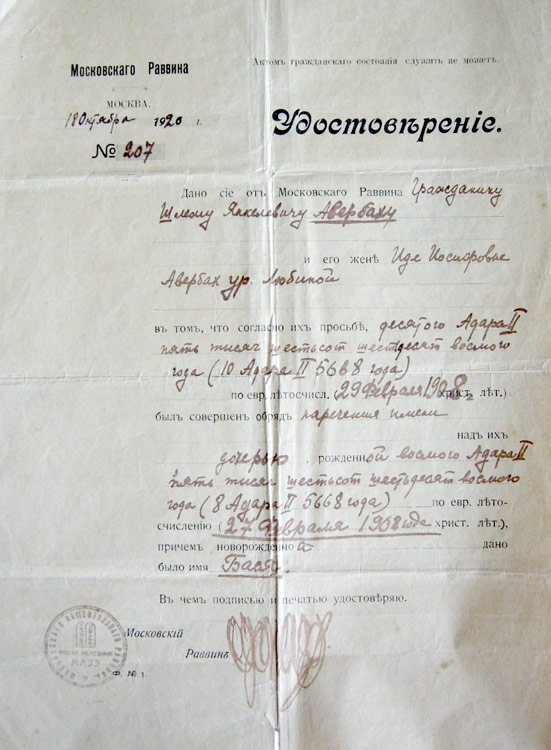 Московскаго Раввина
МОСКВА.
18 Октября 1920 г.
№ 207
Актомъ гражданскаго состоянія служить не можетъ.
Удостовѣреніе.
Дано сіе отъ Московскаго Раввина Гражданину
Шлему Янкелевичу Авербаху
и его женѣ Иде Иосифовне
Авербах ур. Любиной
въ томъ, что согласно ихъ просьбѣ, десятого Адара II
пять тысяч шестьсот шестдесят восмого
года (10 Адара II 5668 года)
по евр. лѣтосчисл. (29 Февраля 1908 христ. лѣт.)
былъ совершенъ обрядъ наречения имени
надъ ихъ
дочерью, рожденной восмого Адара II
пять тысяч шестьсот шестьдесят восмого
года (8 Адара II 5668 года) по евр. лѣто-
счисленію (27 Февраля 1908 года христ. лѣт.),
причемъ новорожденной дано
было имя Бася.
Въ чемъ подписью и печатью удостовѣряю.
Московскій
Раввинъ
Ф. № 1.